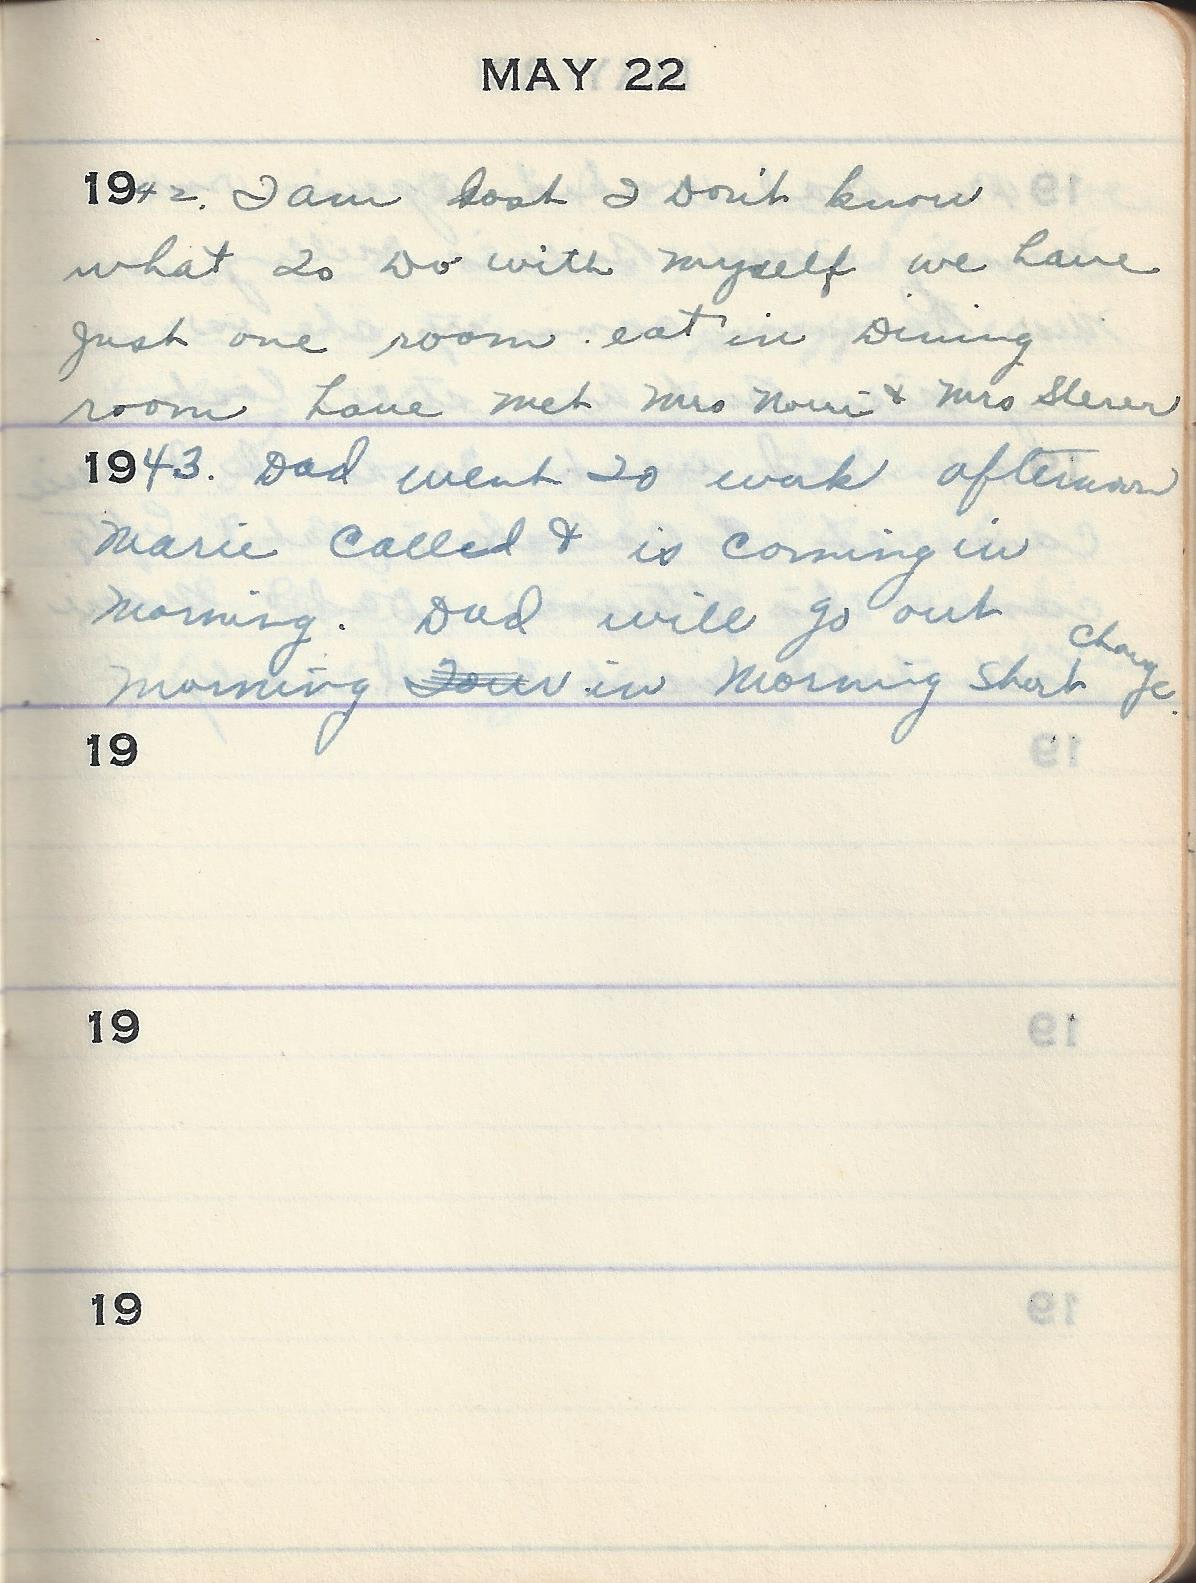 MAY 22
1942. I am lost I Don't know
what to Do with myself we have
Just one room. eat in Dining
room have met Mrs & Mrs
1943. Dad went to work afternoon
Marie Called & is coming in
Morning. Dad will go out
change
morning Tour in Morning Short
19
19
19